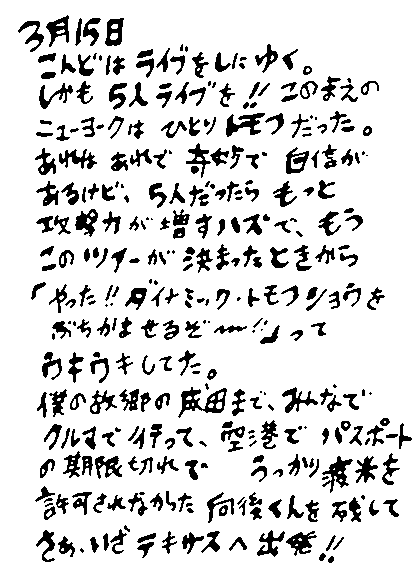 3月15日
こんどは ライブをしに ゆく。
しかも 5人ライブを!! このまえの
ニューヨークは ひとり トモフだった。
あれは あれで 奇妙で 自信が
あるけど、5人だったら もっと
攻撃力が 増すハズで、もう
このツアーが 決まったときから
「やった!! ダイナミック・トモフショウを
ぶちかませるぞ〜!!」って
ウキウキしてた。
僕の故郷の 成田まで、みんなで
クルマで 行って、空港で パスポート
の期限切れで うっかり 渡米を
許可されなかった 向後くんを 残して
さあ、いざ テキサスへ 出発!!